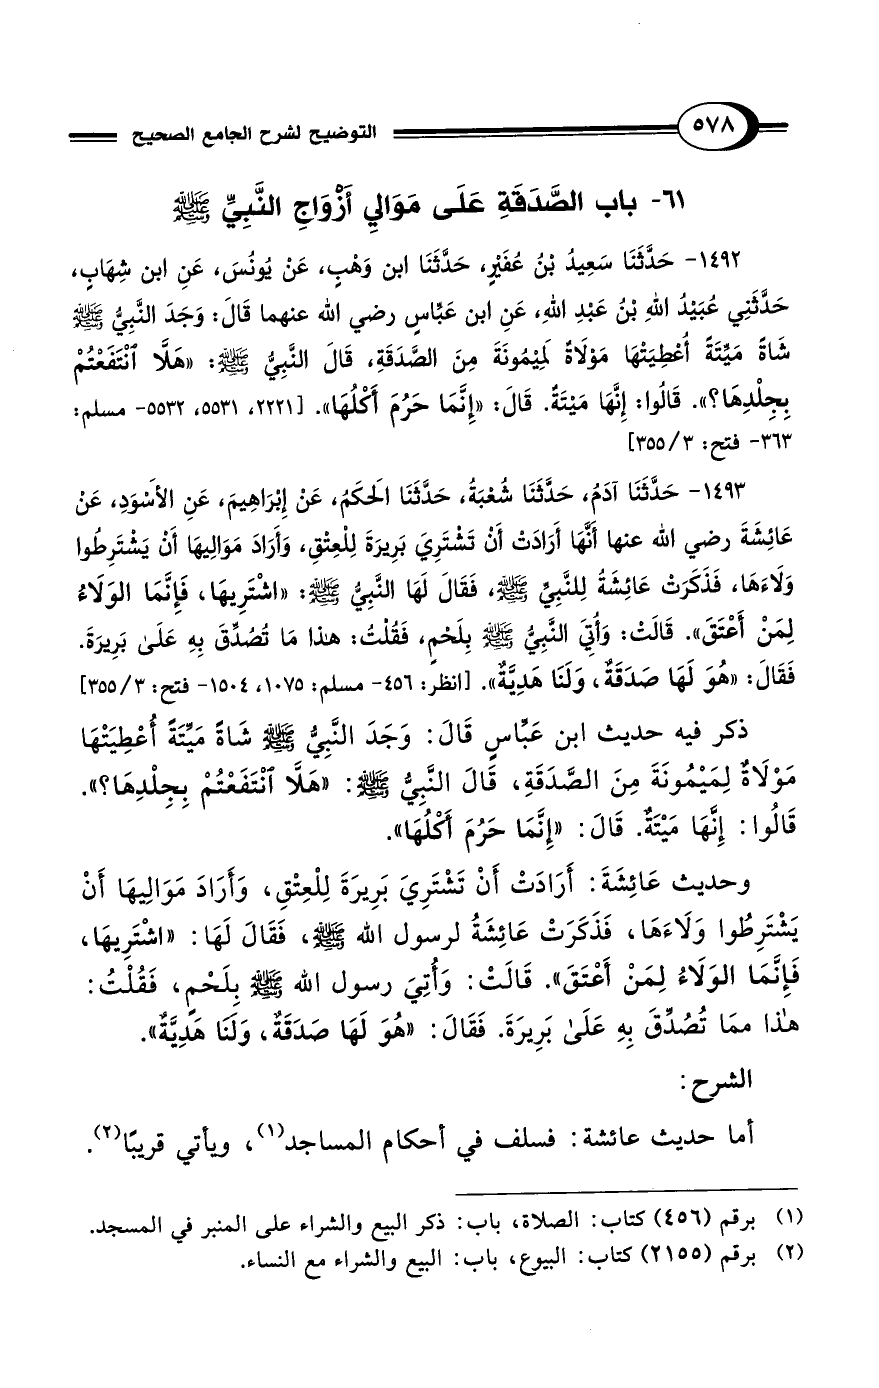 ٥٧٨
التوضيح لشرح الجامع الصحيح
٦١- باب الصَّدَقَةِ عَلَى مَوَالِي أَزْوَاجِ النَّبِيِّ ﷺ
١٤٩٢- حَدَّثَنَا سَعِيدُ بْنُ عُفَيْرٍ، حَدَّثَنَا ابن وَهْبٍ، عَنْ يُونُسَ، عَنِ ابن شِهَابٍ،
حَدَّثَنِي عُبَيْدُ اللهِ بْنُ عَبْدِ اللهِ، عَنِ ابن عَبَّاسٍ رضي الله عنهما قَالَ: وَجَدَ النَّبِيُّ ﷺ
شَاةً مَيِّتَةً أُعْطِيَتْهَا مَوْلَاةٌ لِمَيْمُونَةَ مِنَ الصَّدَقَةِ، قَالَ النَّبِيُّ ﷺ: «هَلَّا ٱنْتَفَعْتُمْ
بِجِلْدِهَا؟». قَالُوا: إِنَّهَا مَيْتَةٌ. قَالَ: «إِنَّمَا حَرُمَ أَكْلُهَا». [٢٢٢١، ٥٥٣١، ٥٥٣٢- مسلم:
٣٦٣- فتح: ٣/ ٣٥٥]
١٤٩٣- حَدَّثَنَا آدَمُ، حَدَّثَنَا شُعْبَةُ، حَدَّثَنَا الَحكَمُ، عَنْ إِبْرَاهِيمَ، عَنِ الأَسْوَدِ، عَنْ
عَائِشَةَ رضي الله عنها أَنَّهَا أَرَادَتْ أَنْ تَشْتَرِيَ بَرِيرَةَ لِلْعِتْقِ، وَأَرَادَ مَوَالِيهَا أَنْ يَشْتَرِطُوا
وَلَاءَهَا، فَذَكَرَتْ عَائِشَةُ لِلنَّبِيِّ ﷺ، فَقَالَ لَهَا النَّبِيُّ ﷺ: «اشْتَرِيهَا، فَإِنَّمَا الوَلَاءُ
لِمَنْ أَعْتَقَ». قَالَتْ: وَأُتِيَ النَّبِيُّ ﷺ بِلَحْمٍ، فَقُلْتُ: هٰذا مَا تُصُدِّقَ بِهِ عَلَىٰ بَرِيرَةَ.
فَقَالَ: «هُوَ لَهَا صَدَقَةٌ، وَلَنَا هَدِيَّةٌ». [انظر: ٤٥٦- مسلم: ١٠٧٥، ١٥٠٤- فتح: ٣/ ٣٥٥]
ذكر فيه حديث ابن عَبَّاسٍ قَالَ: وَجَدَ النَّبِيُّ ﷺ شَاةً مَيِّتَةً أُعْطِيَتْهَا
مَوْلَاةٌ لِمَيْمُونَةَ مِنَ الصَّدَقَةِ، قَالَ النَّبِيُّ ﷺ: «هَلَّا ٱنْتَفَعْتُمْ بِجِلْدِهَا؟».
قَالُوا: إِنَّهَا مَيْتَةٌ. قَالَ: «إِنَّمَا حَرُمَ أَكْلُهَا».
وحديث عَائِشَةَ: أَرَادَتْ أَنْ تَشْتَرِيَ بَرِيرَةَ لِلْعِتْقِ، وَأَرَادَ مَوَالِيهَا أَنْ
يَشْتَرِطُوا وَلَاءَهَا، فَذَكَرَتْ عَائِشَةُ لرسول الله ﷺ، فَقَالَ لَهَا: «اشْتَرِيهَا،
فَإِنَّمَا الوَلَاءُ لِمَنْ أَعْتَقَ». قَالَتْ: وَأُتِيَ رسول الله ﷺ بِلَحْمٍ، فَقُلْتُ:
هٰذا مما تُصُدِّقَ بِهِ عَلَىٰ بَرِيرَةَ. فَقَالَ: «هُوَ لَهَا صَدَقَةٌ، وَلَنَا هَدِيَّةٌ».
الشرح:
أما حديث عائشة: فسلف في أحكام المساجد(١)، ويأتي قريبًا(٢).
(١) برقم (٤٥٦) كتاب: الصلاة، باب: ذكر البيع والشراء على المنبر في المسجد.
(٢) برقم (٢١٥٥) كتاب: البيوع، باب: البيع والشراء مع النساء.